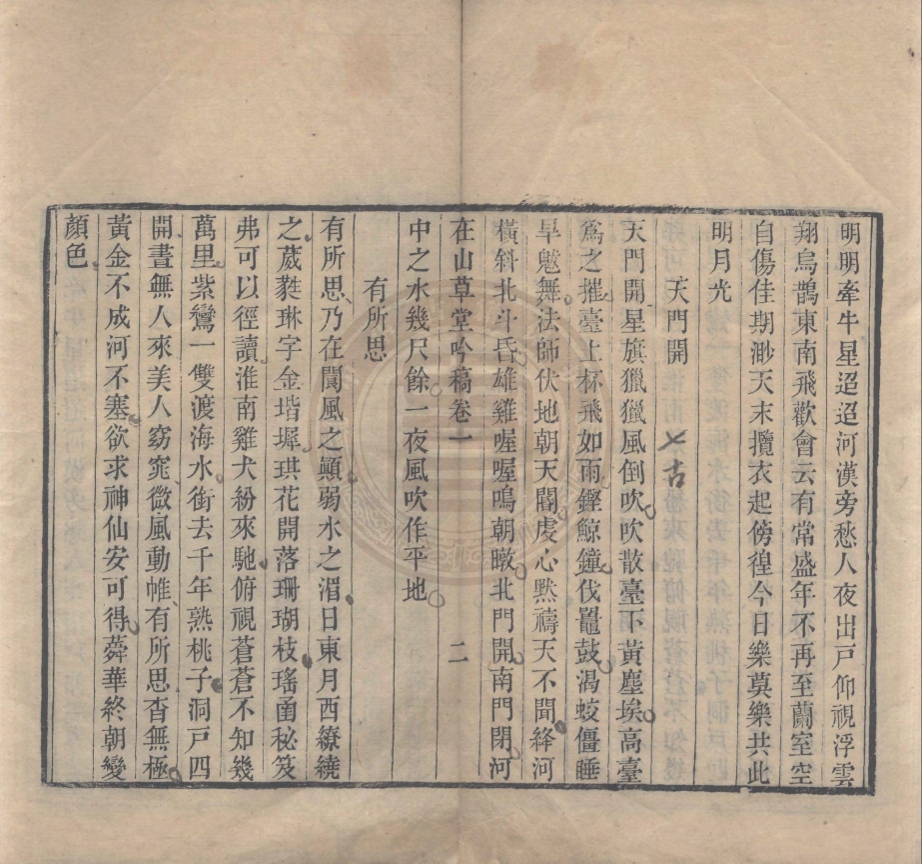 明明牽牛星迢迢河漢旁愁人夜出戸仰視浮雲
翔烏鵲東南飛歡會云有常盛年不再至蘭室空
自傷佳期渺天末攬衣起傍徨今日樂莫樂共此
明月光
天門開　七古
天門開星旗獵獵風倒吹吹散臺下黃塵埃高臺
爲之摧臺上杯飛如雨鏗鯨鐘伐鼉鼓渴蛟僵睡
旱魃舞法師伏地朝天閽虔心黙禱天不聞絳河
橫斜北斗昏雄雞喔喔鳴朝暾北門開南門閉河
在山草堂吟稿卷一　二
中之水幾尺餘一夜風吹作平地
有所思
有所思乃在閬風之顚弱水之湄日東月西繚繞
之葳蕤琳字金堦墀琪花開落珊瑚枝瑤函秘笈
弗可以徑讀淮南雞犬紛來馳俯視蒼蒼不知幾
萬里紫鸞一雙渡海水銜去千年熟桃子洞戸四
開晝無人來美人窈窕微風動帷有所思杳無極
黃金不成河不塞欲求神仙安可得蕣華終朝變
顏色